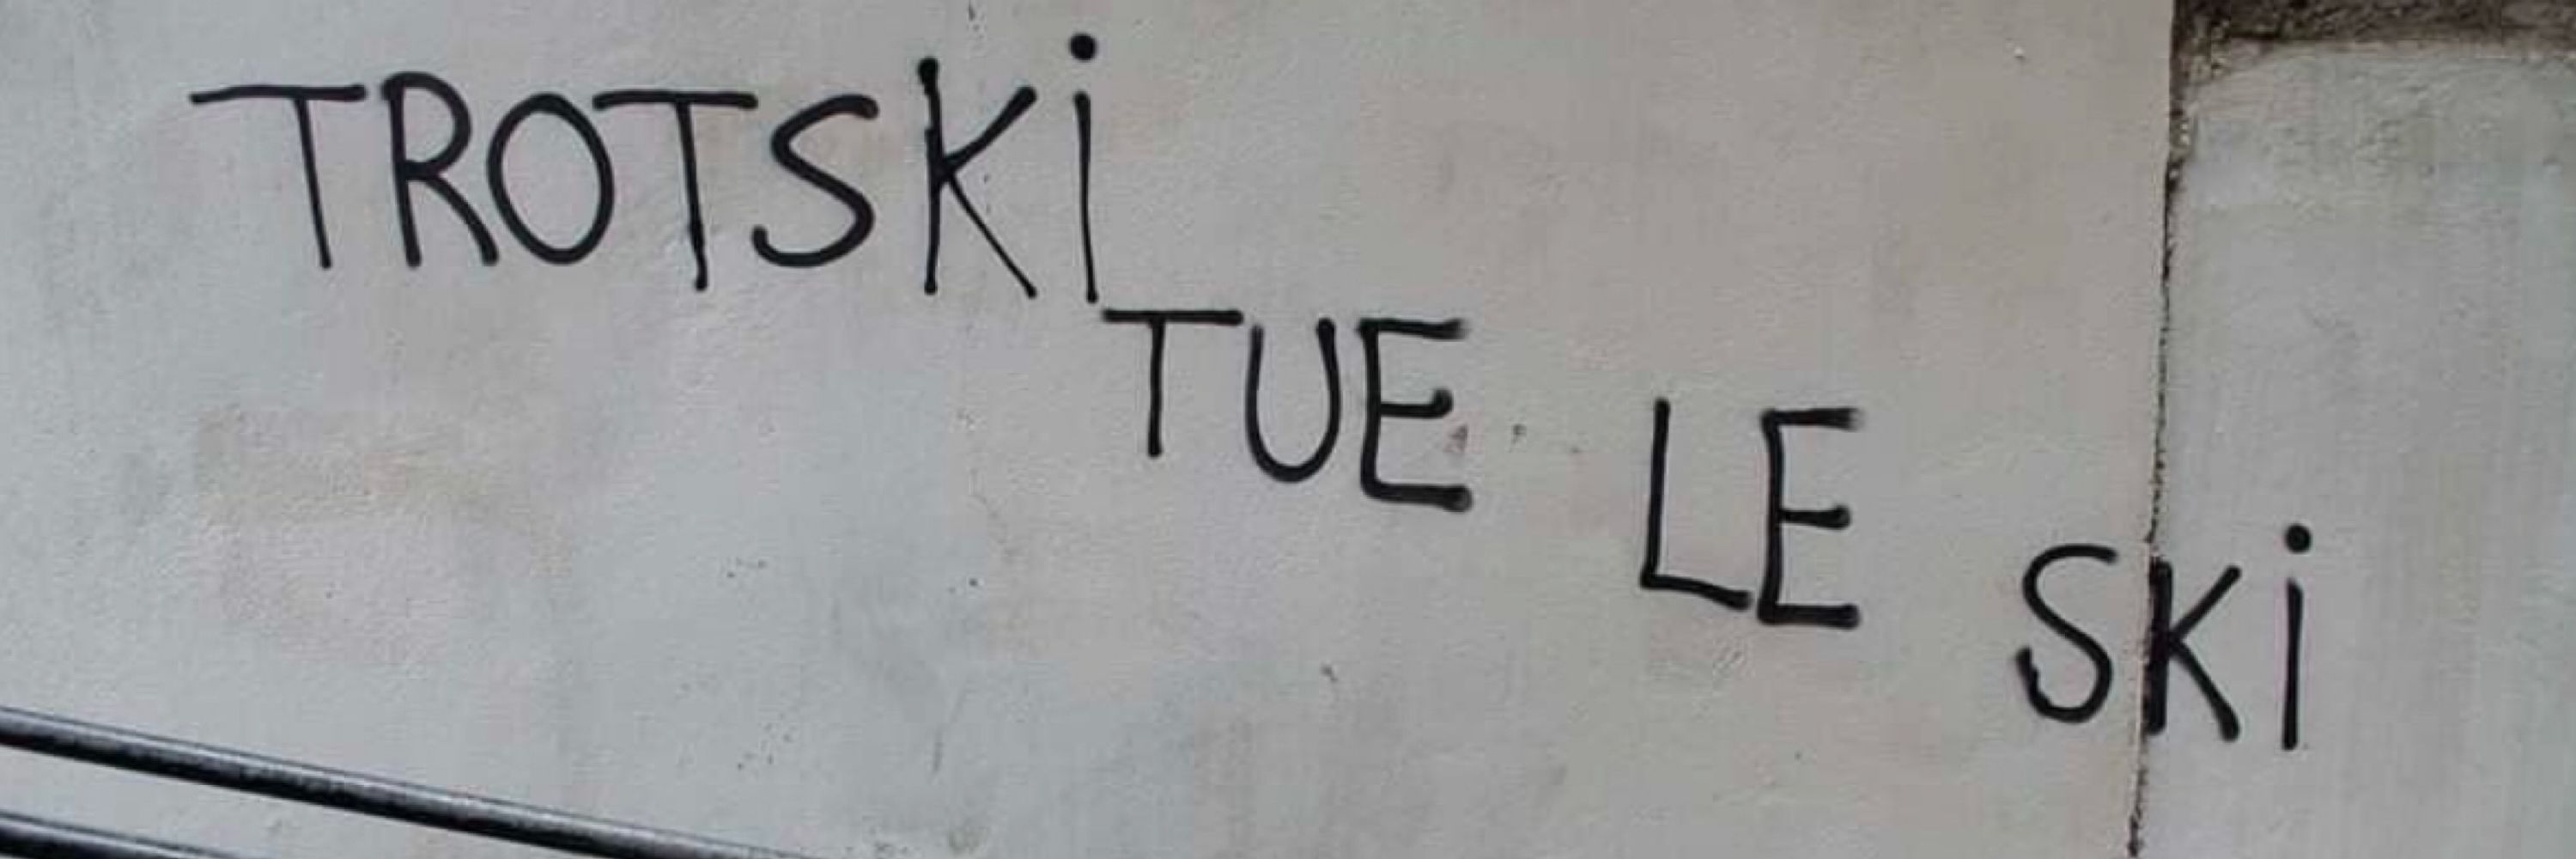 TROTSKi
TUE
LE
SKi